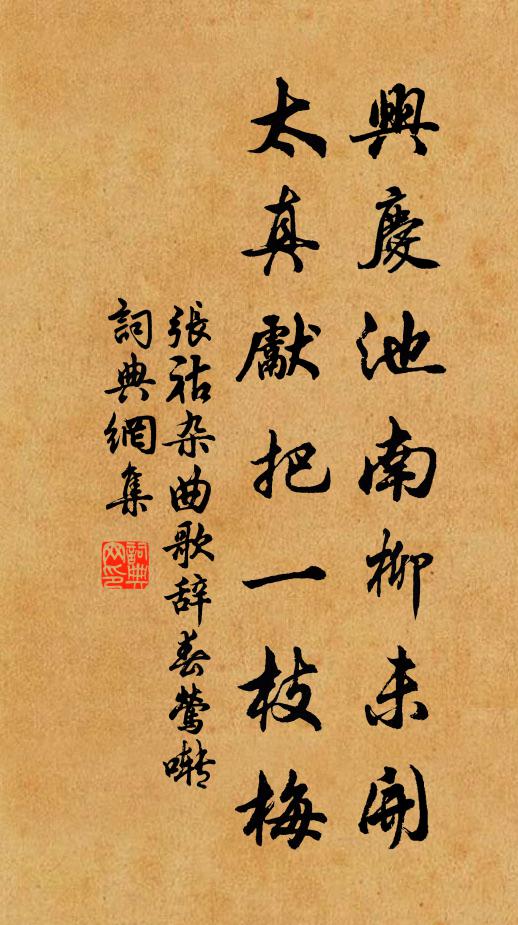 興慶池南柳未開
太真獻把一枝梅
張祜杂曲歌辞春鶯囀
詞典網集
詞典网印